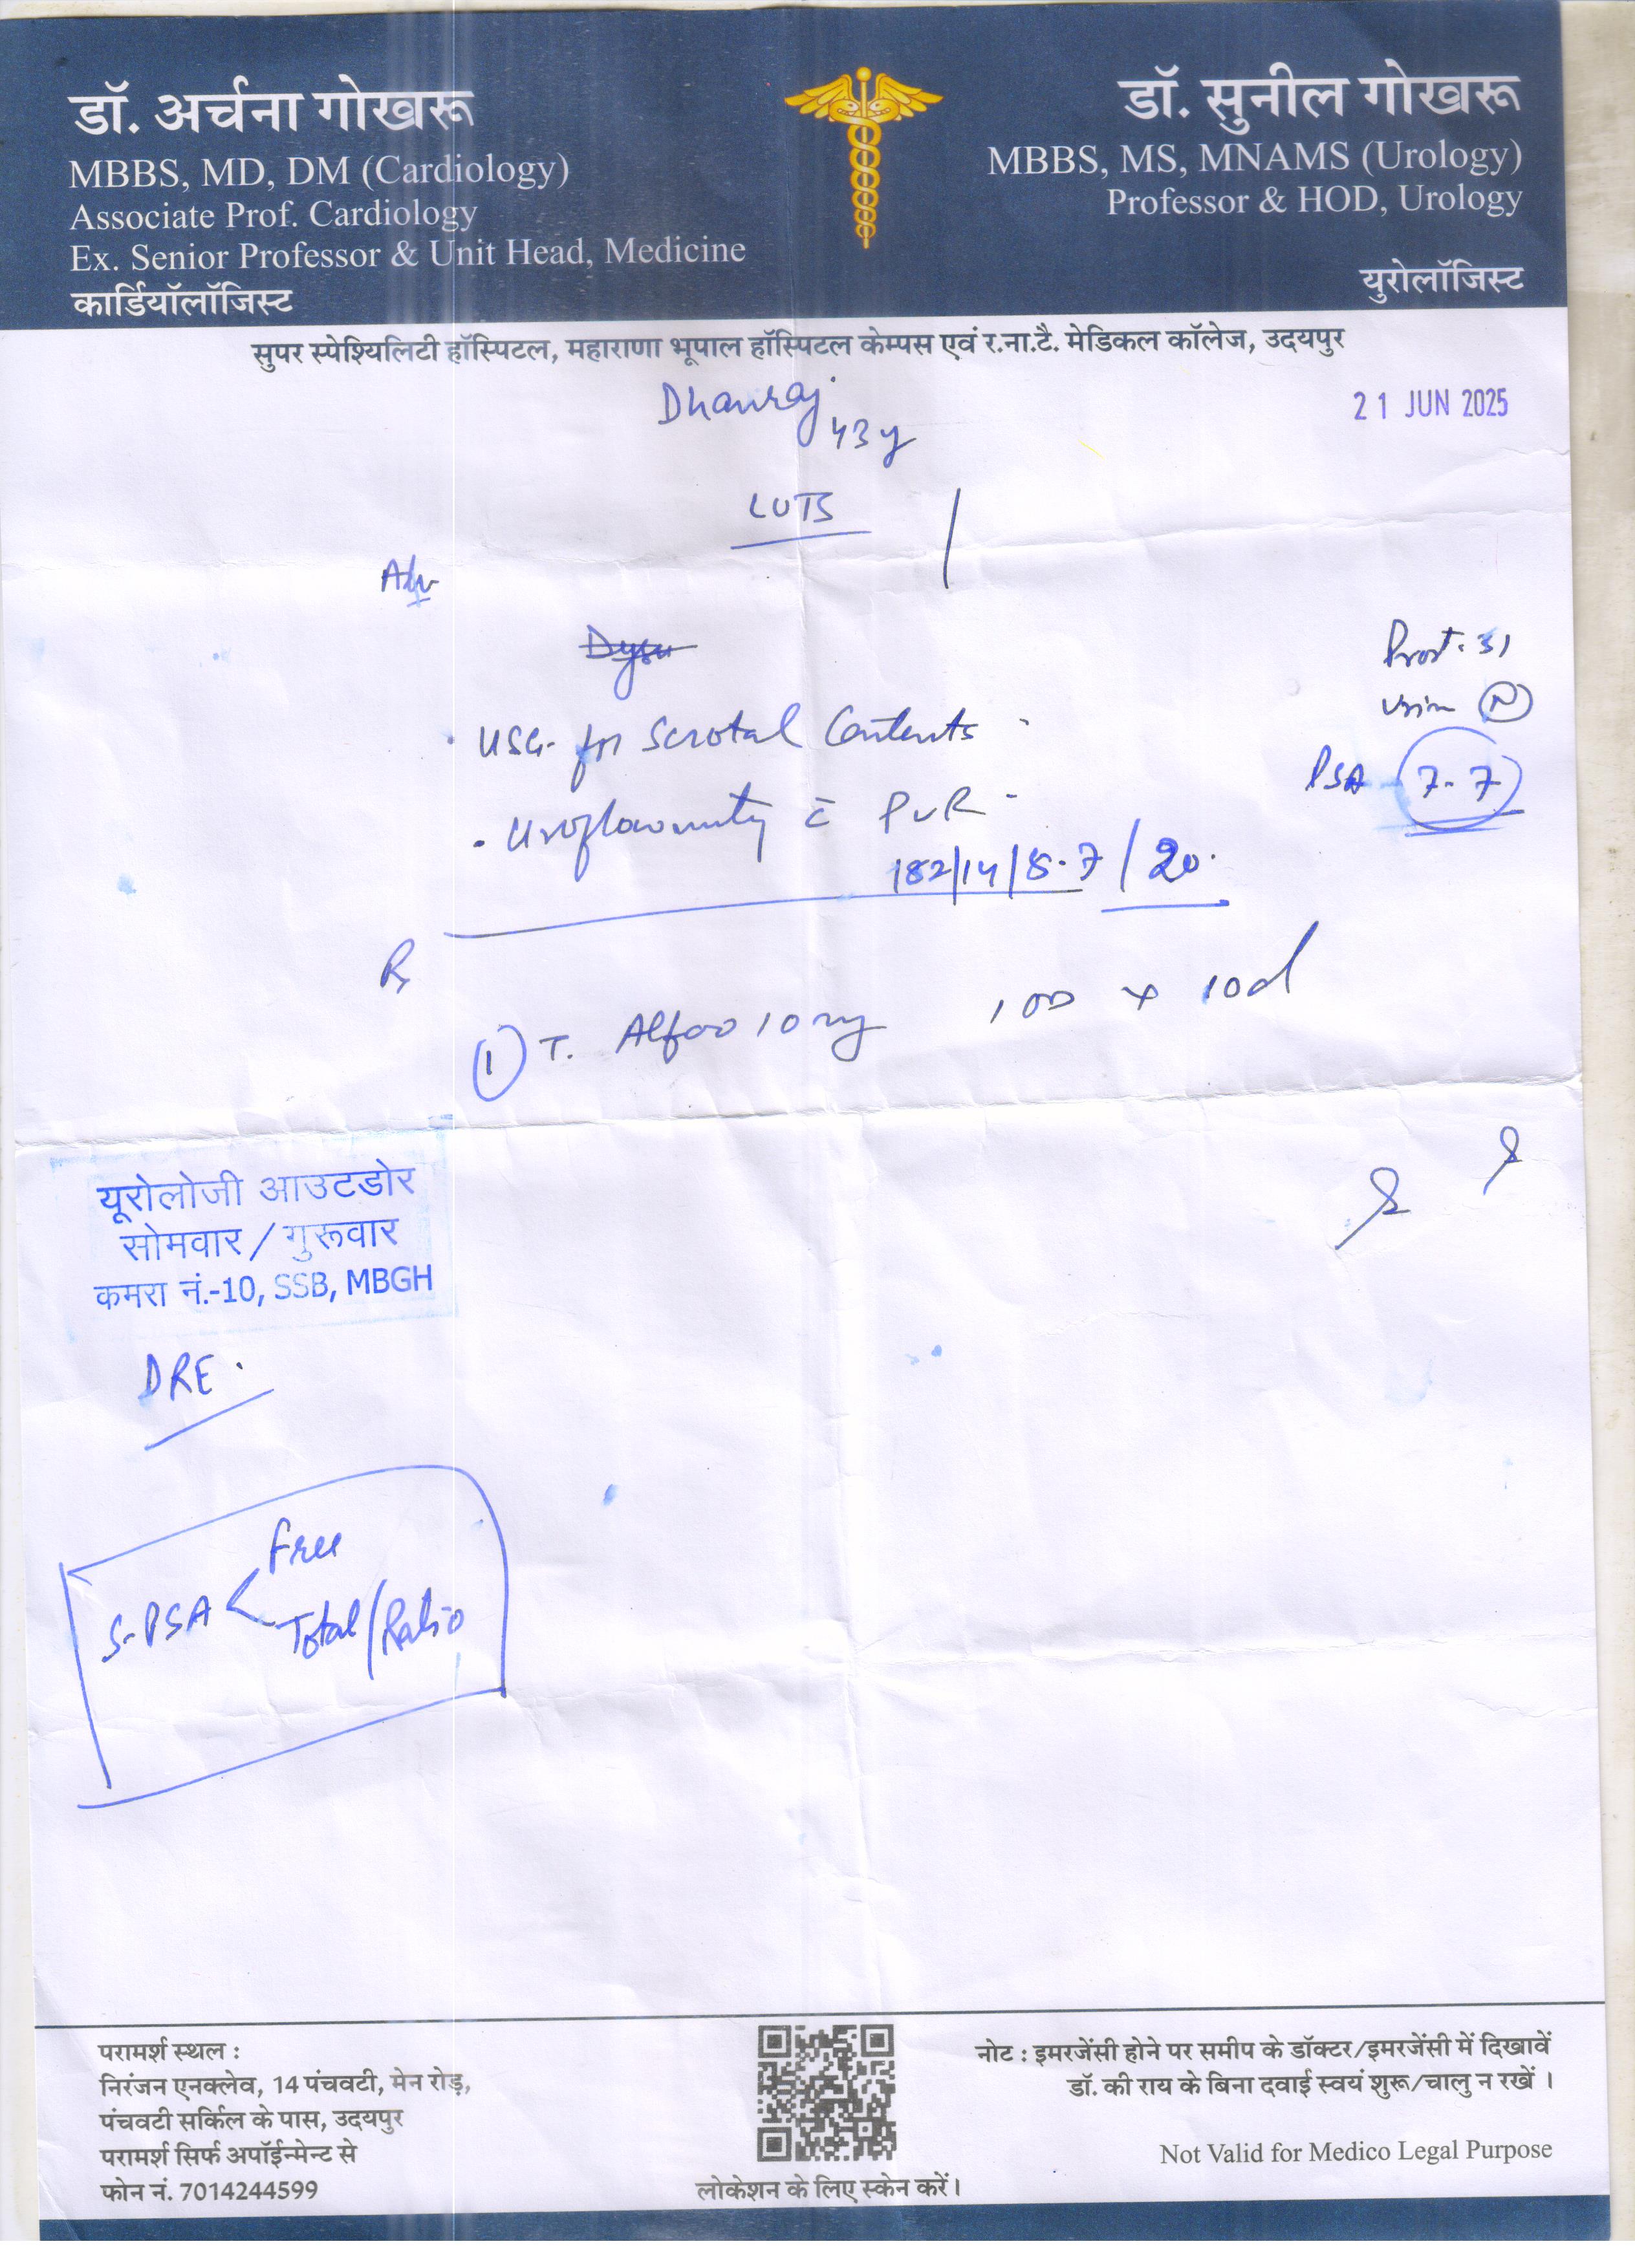 डॉ. अर्चना गोखरू
MBBS, MD, DM (Cardiology)
Associate Prof. Cardiology
Ex. Senior Professor & Unit Head, Medicine
कार्डियॉलॉजिस्ट
डॉ. सुनील गोखरू
MBBS, MS, MNAMS (Urology)
Professor & HOD, Urology
युरोलॉजिस्ट
सुपर स्पेश्यिलिटी हॉस्पिटल, महाराणा भूपाल हॉस्पिटल केम्पस एवं र.ना.टै. मेडिकल कॉलेज, उदयपुर
21 JUN 2025
Dhanraj
43y
LUTS
Adv
Prost. 31
Urine (N)
PSA 7.7
. USG for Scrotal Contents
. Uroflowmetry c̄ PVR
182/14/8.7/20.
Rx
(1) T. Alfoo 10mg 1 OD x 10d
यूरोलोजी आउटडोर
सोमवार / गुरूवार
कमरा नं.-10, SSB, MBGH
DRE.
S-PSA < Free
Total/Ratio
परामर्श स्थल :
निरंजन एनक्लेव, 14 पंचवटी, मेन रोड़,
पंचवटी सर्किल के पास, उदयपुर
परामर्श सिर्फ अपॉईन्मेन्ट से
फोन नं. 7014244599
लोकेशन के लिए स्केन करें।
नोट : इमरजेंसी होने पर समीप के डॉक्टर/इमरजेंसी में दिखावें
डॉ. की राय के बिना दवाई स्वयं शुरू/चालु न रखें ।
Not Valid for Medico Legal Purpose